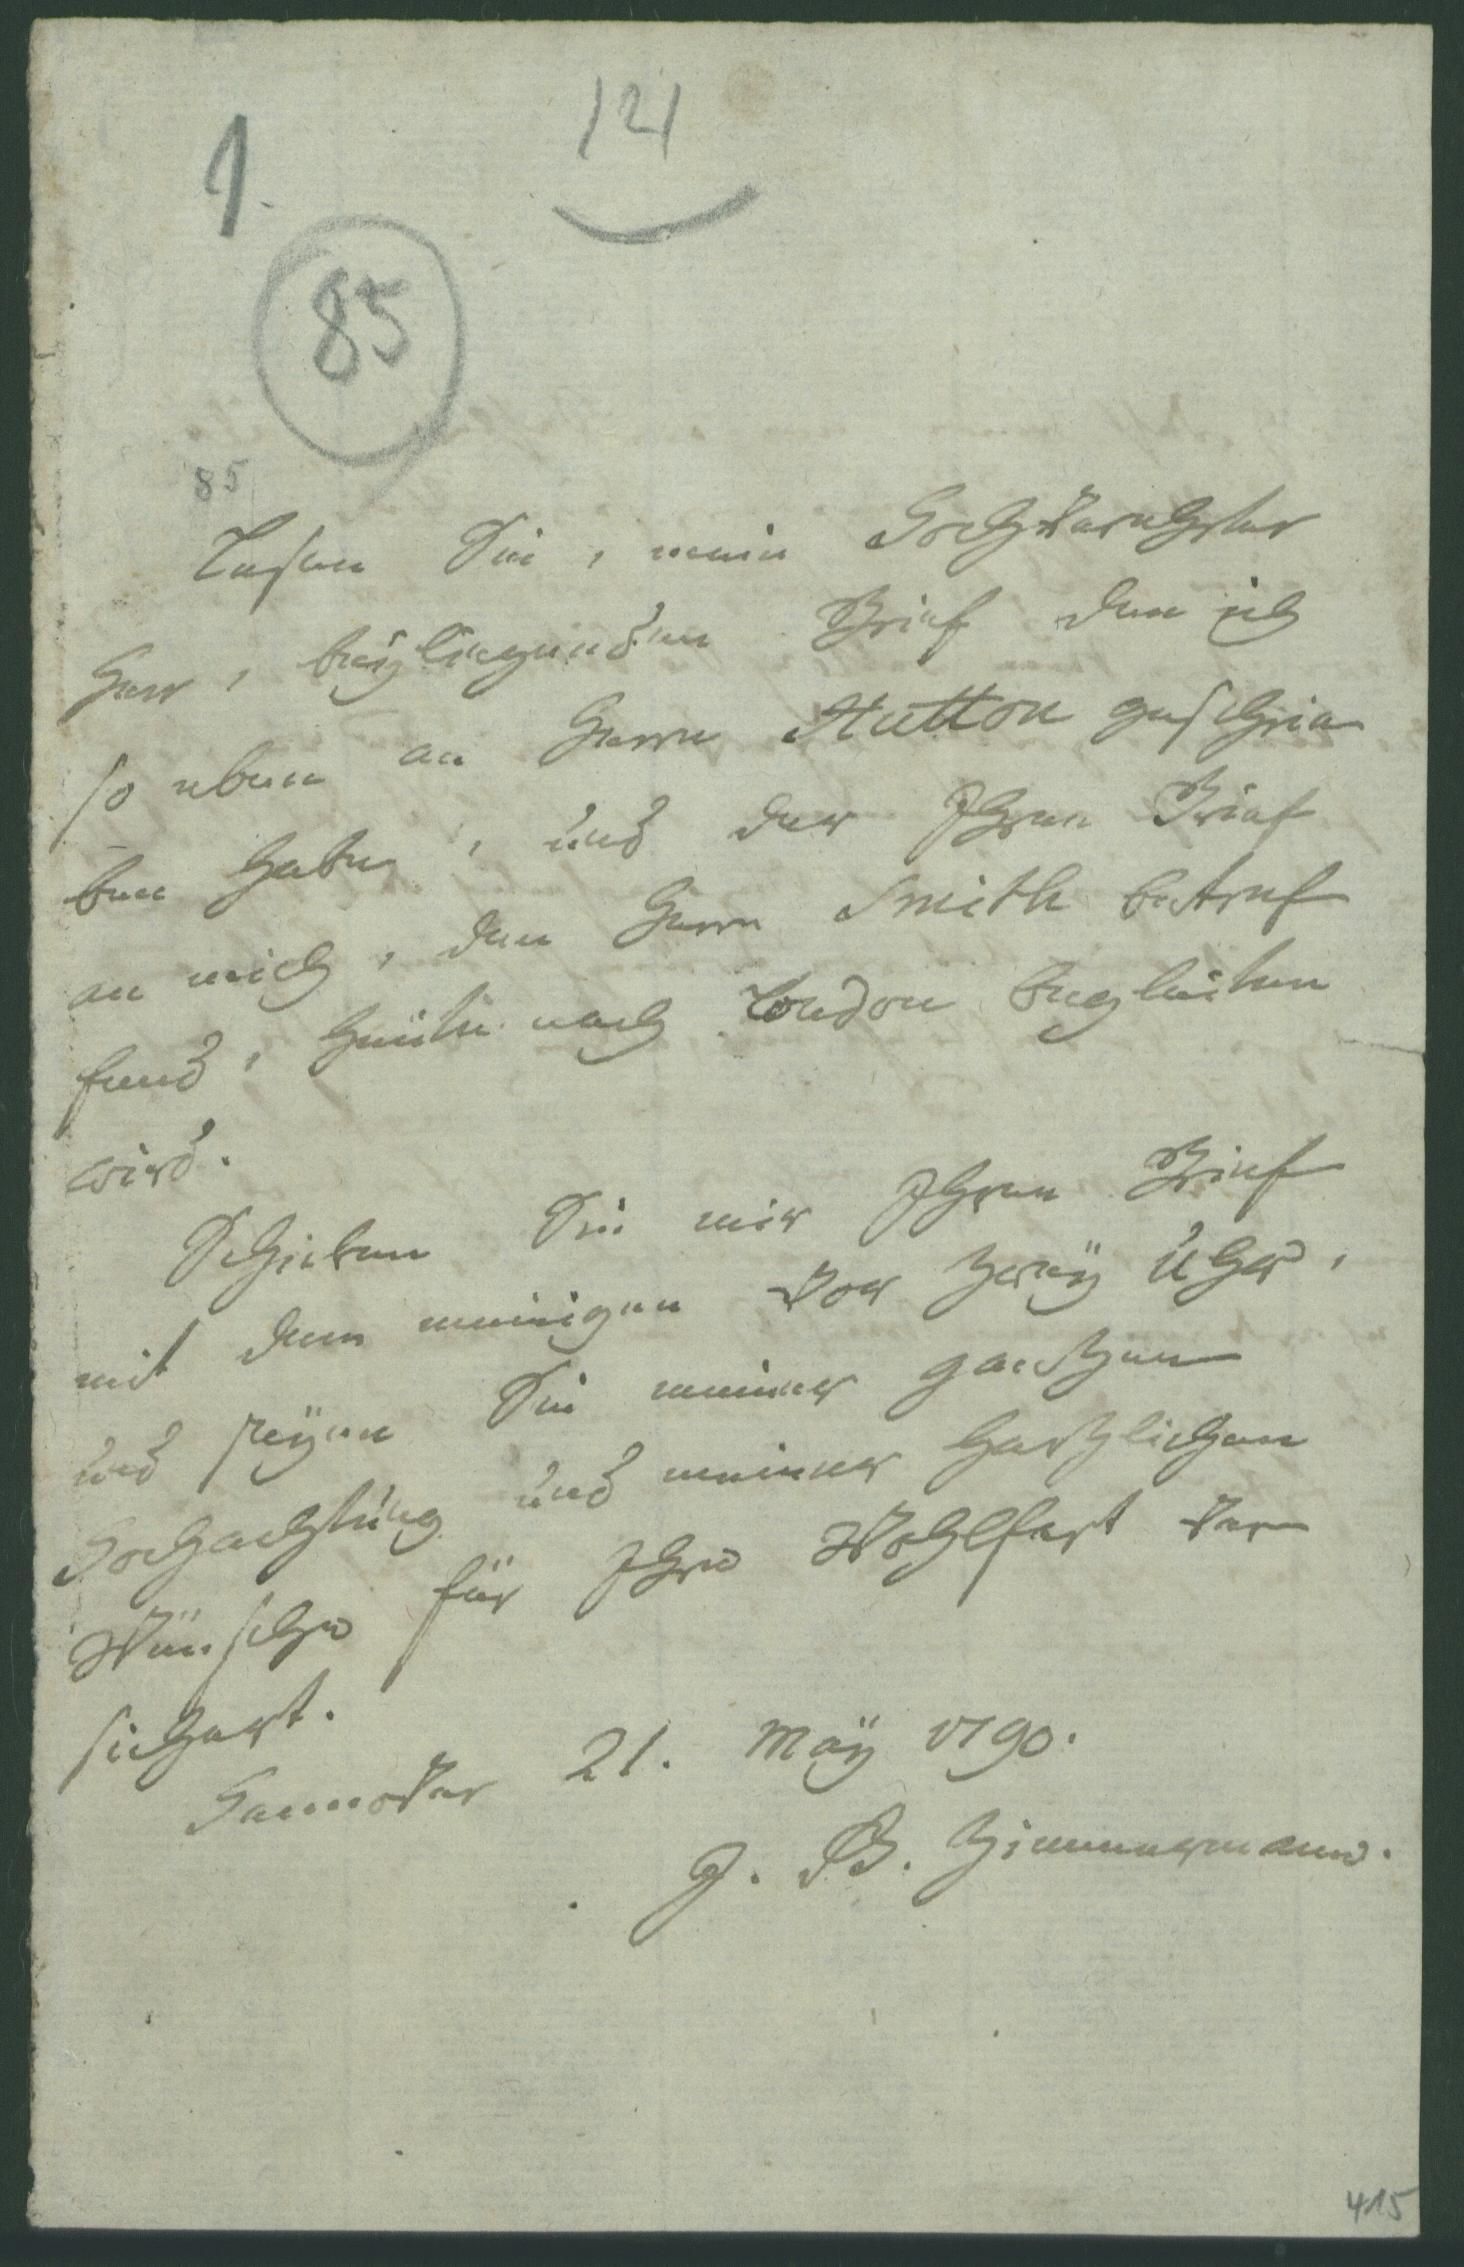 121
1.
85
85
Lesen Sie, mein Hochverehrter
Herr, beÿliegenden Brief den ich
so eben an Herrn Hutton geschrie
ben habe, und der Ihren Brief
an mich, den Herrn Smith betref
fend, heute nach London begleiten
wird.
Schicken Sie mir Ihren Brief
mit dem meinigen vor zweÿ Uhr,
und seÿen Sie meiner gantzen
Hochachtung und meiner hertzlichen
Wünsche für Ihre Wohlfart ver
sichert.
Hannover 21. Maÿ 1790.
J. G. Zimmermann.
415